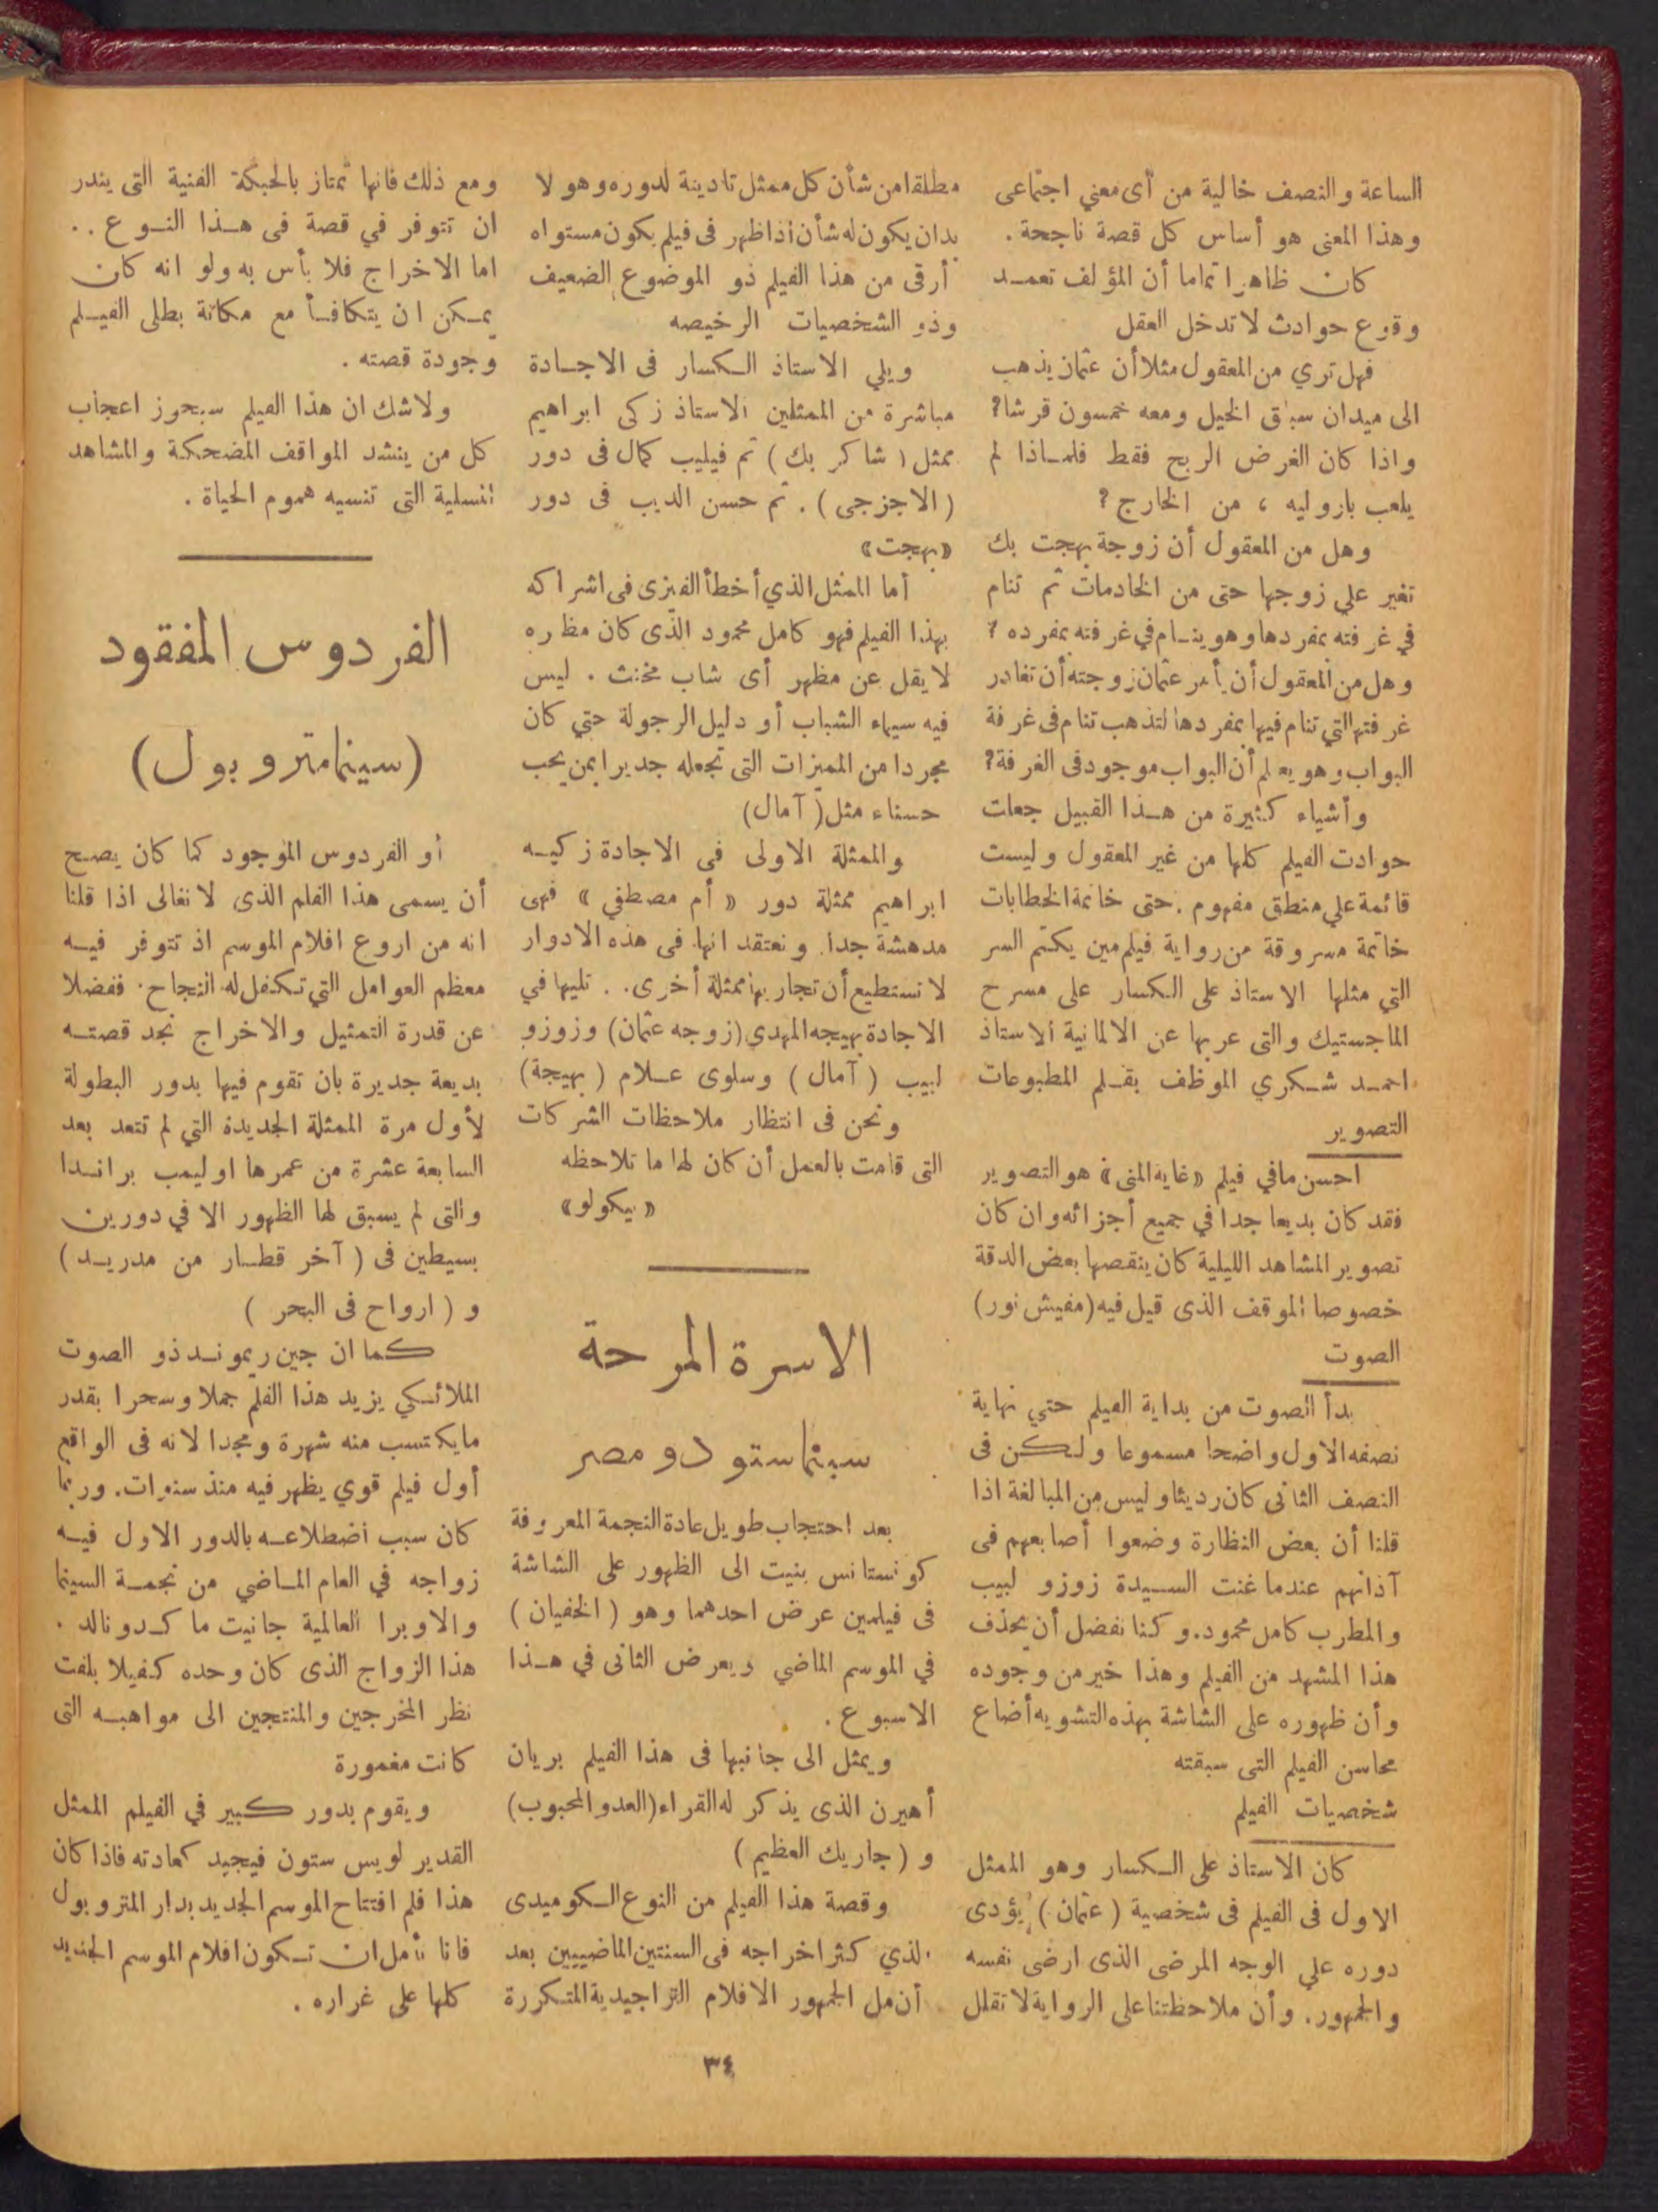 الساعة والنصف خالية من أى معني اجتماعى
وهذا المعنى هو أساس كل قصة ناجحة .
كان ظاهرا تماما أن المؤلف تعمد
وقوع حوادث لا تدخل العقل
فهل تري من المعقول مثلا أن عثمان يذهب
الى ميدان سباق الخيل ومعه خمسون قرشا؟
واذا كان الغرض الربح فقط فلماذا لم
يلعب باروليه ، من الخارج ؟
وهل من المعقول أن زوجة بهجت بك
تغير علي زوجها حتى من الخادمات ثم تنام
في غرفته بمفردها وهو ينام في غرفته بمفرده ؟
وهل من المعقول أن يأمر عثمان زوجته أن تغادر
غرفتها التي تنام فيها بمفردها لتذهب تنام فى غرفة
البواب وهو يعلم أن البواب موجود فى الغرفة؟
وأشياء كثيرة من هذا القبيل جعلت
حوادث الفيلم كلها من غير المعقول وليست
قائمة علي منطق مفهوم . حتى خاتمة الخطابات
خاتمة مسروقة من رواية فيلم مين يكتم السر
التي مثلها الاستاذ على الكسار على مسرح
الماجستيك والتى عربها عن الالمانية الاستاذ
احمد شكري الموظف بقلم المطبوعات
التصوير
احسن مافي فيلم «غاية المنى» هو التصوير
فقد كان بديعا جدا في جميع أجزائه وان كان
تصوير المشاهد الليلية كان ينقصها بعض الدقة
خصوصا الموقف الذى قيل فيه (مفيش نور)
الصوت
بدأ الصوت من بداية الفيلم حتي نهاية
نصفه الاول واضحا مسموعا ولكن فى
النصف الثانى كان رديئا وليس من المبالغة اذا
قلنا أن بعض النظارة وضعوا أصابعهم فى
آذانهم عندما غنت السيدة زوزو لبيب
والمطرب كامل محمود. وكنا نفضل أن يحذف
هذا المشهد من الفيلم وهذا خير من وجوده
وأن ظهوره على الشاشة بهذه التشويه أضاع
محاسن الفيلم التى سبقته
شخصيات الفيلم
كان الاستاذ على الكسار وهو الممثل
الاول فى الفيلم فى شخصية ( عثمان ) يؤدى
دوره علي الوجه المرضى الذى ارضى نفسه
والجمهور. وأن ملاحظتنا على الرواية لا تقلل
مطلقا من شأن كل ممثل تادينة لدوره وهو لا
بد ان يكون له شأن اذا ظهر فى فيلم يكون مستواه
أرقى من هذا الفيلم ذو الموضوع الضعيف
وذو الشخصيات الرخيصه
ويلي الاستاذ الكسار فى الاجادة
مباشرة من الممثلين الاستاذ زكى ابراهيم
ممثل ( شاكر بك ) ثم فيليب كمال فى دور
( الاجزجى ) . ثم حسن الديب فى دور
«بهجت»
أما الممثل الذي أخطأ الفيزى فى اشراكه
بهذا الفيلم فهو كامل محمود الذى كان مظهره
لا يقل عن مظهر أى شاب مخنث . ليس
فيه سيماء الشباب أو دليل الرجولة حتي كان
مجردا من المميزات التى تجعله جديرا بمن يحب
حسناء مثل ( آمال)
والممثلة الاولى فى الاجادة زكيه
ابراهيم ممثلة دور « أم مصطفي » فهى
مدهشة جدا . ونعتقد انها فى هذه الادوار
لا نستطيع أن تجاريها ممثلة أخرى . . تليها في
الاجادة بهيجه المهدي (زوجه عثمان) وزوزو
لبيب ( آمال ) وسلوى علام ( بهيجة)
ونحن فى انتظار ملاحظات الشركات
التى قامت بالعمل أن كان لها ما تلاحظه
«بيكولو»
الاسرة المرحة
سينما ستودو مصر
بعد احتجاب طويل عادة النجمة المعروفة
كونستانس بنيت الى الظهور على الشاشة
فى فيلمين عرض احدهما وهو ( الخفيان )
في الموسم الماضي ويعرض الثانى في هذا
الاسبوع .
ويمثل الى جانبها فى هذا الفيلم بريان
أهيرن الذى يذكر له القراء (العدو المحبوب)
و ( جاريك العظيم )
وقصة هذا الفيلم من النوع الكوميدى
الذي كثر اخراجه فى السنتين الماضييين بعد
أن مل الجمهور الافلام التراجيدية المتكررة
ومع ذلك فانها تمتاز بالحبكة الفنية التى يندر
ان تتوفر في قصة فى هذا النوع ..
اما الاخراج فلا بأس به ولو انه كان
يمكن ان يتكافأ مع مكانة بطلى الفيلم
وجودة قصته .
ولاشك ان هذا الفيلم سيحوز اعجاب
كل من ينشد المواقف المضحكة والمشاهد
المسلية التى تنسيه هموم الحياة .
الفردوس المفقود
(سينما متروبول)
أو الفردوس الموجود كما كان يصح
أن يسمى هذا الفلم الذى لا نغالى اذا قلنا
انه من اروع افلام الموسم اذ تتوفر فيه
معظم العوامل التي تكفل له النجاح . ففضلا
عن قدرة التمثيل والاخراج نجد قصته
بديعة جديرة بان تقوم فيها بدور البطولة
لأول مرة الممثلة الجديدة التي لم تتعد بعد
السابعة عشرة من عمرها اوليمب براندا
والتى لم يسبق لها الظهور الا في دورين
بسيطين فى ( آخر قطار من مدريد )
و ( ارواح فى البحر )
كما ان جين ريموند ذو الصوت
الملائكي يزيد هذا الفلم جملا وسحرا بقدر
مايكتسب منه شهرة ومجدا لانه فى الواقع
أول فيلم قوي يظهر فيه منذ سنوات. وربما
كان سبب اضطلاعه بالدور الاول فيه
زواجه في العام الماضي من نجمة السينما
والاوبرا العالمية جانيت ماكدونالد .
هذا الزواج الذى كان وحده كفيلا بلفت
نظر المخرجين والمنتجين الى مواهبه التى
كانت مغمورة
ويقوم بدور كبير في الفيلم الممثل
القدير لويس ستون فيجيد كعادته فاذا كان
هذا فلم افتتاح الموسم الجديد بدار المتروبول
فانا نأمل ان تكون افلام الموسم الجديد
كلها على غراره .
٣٤